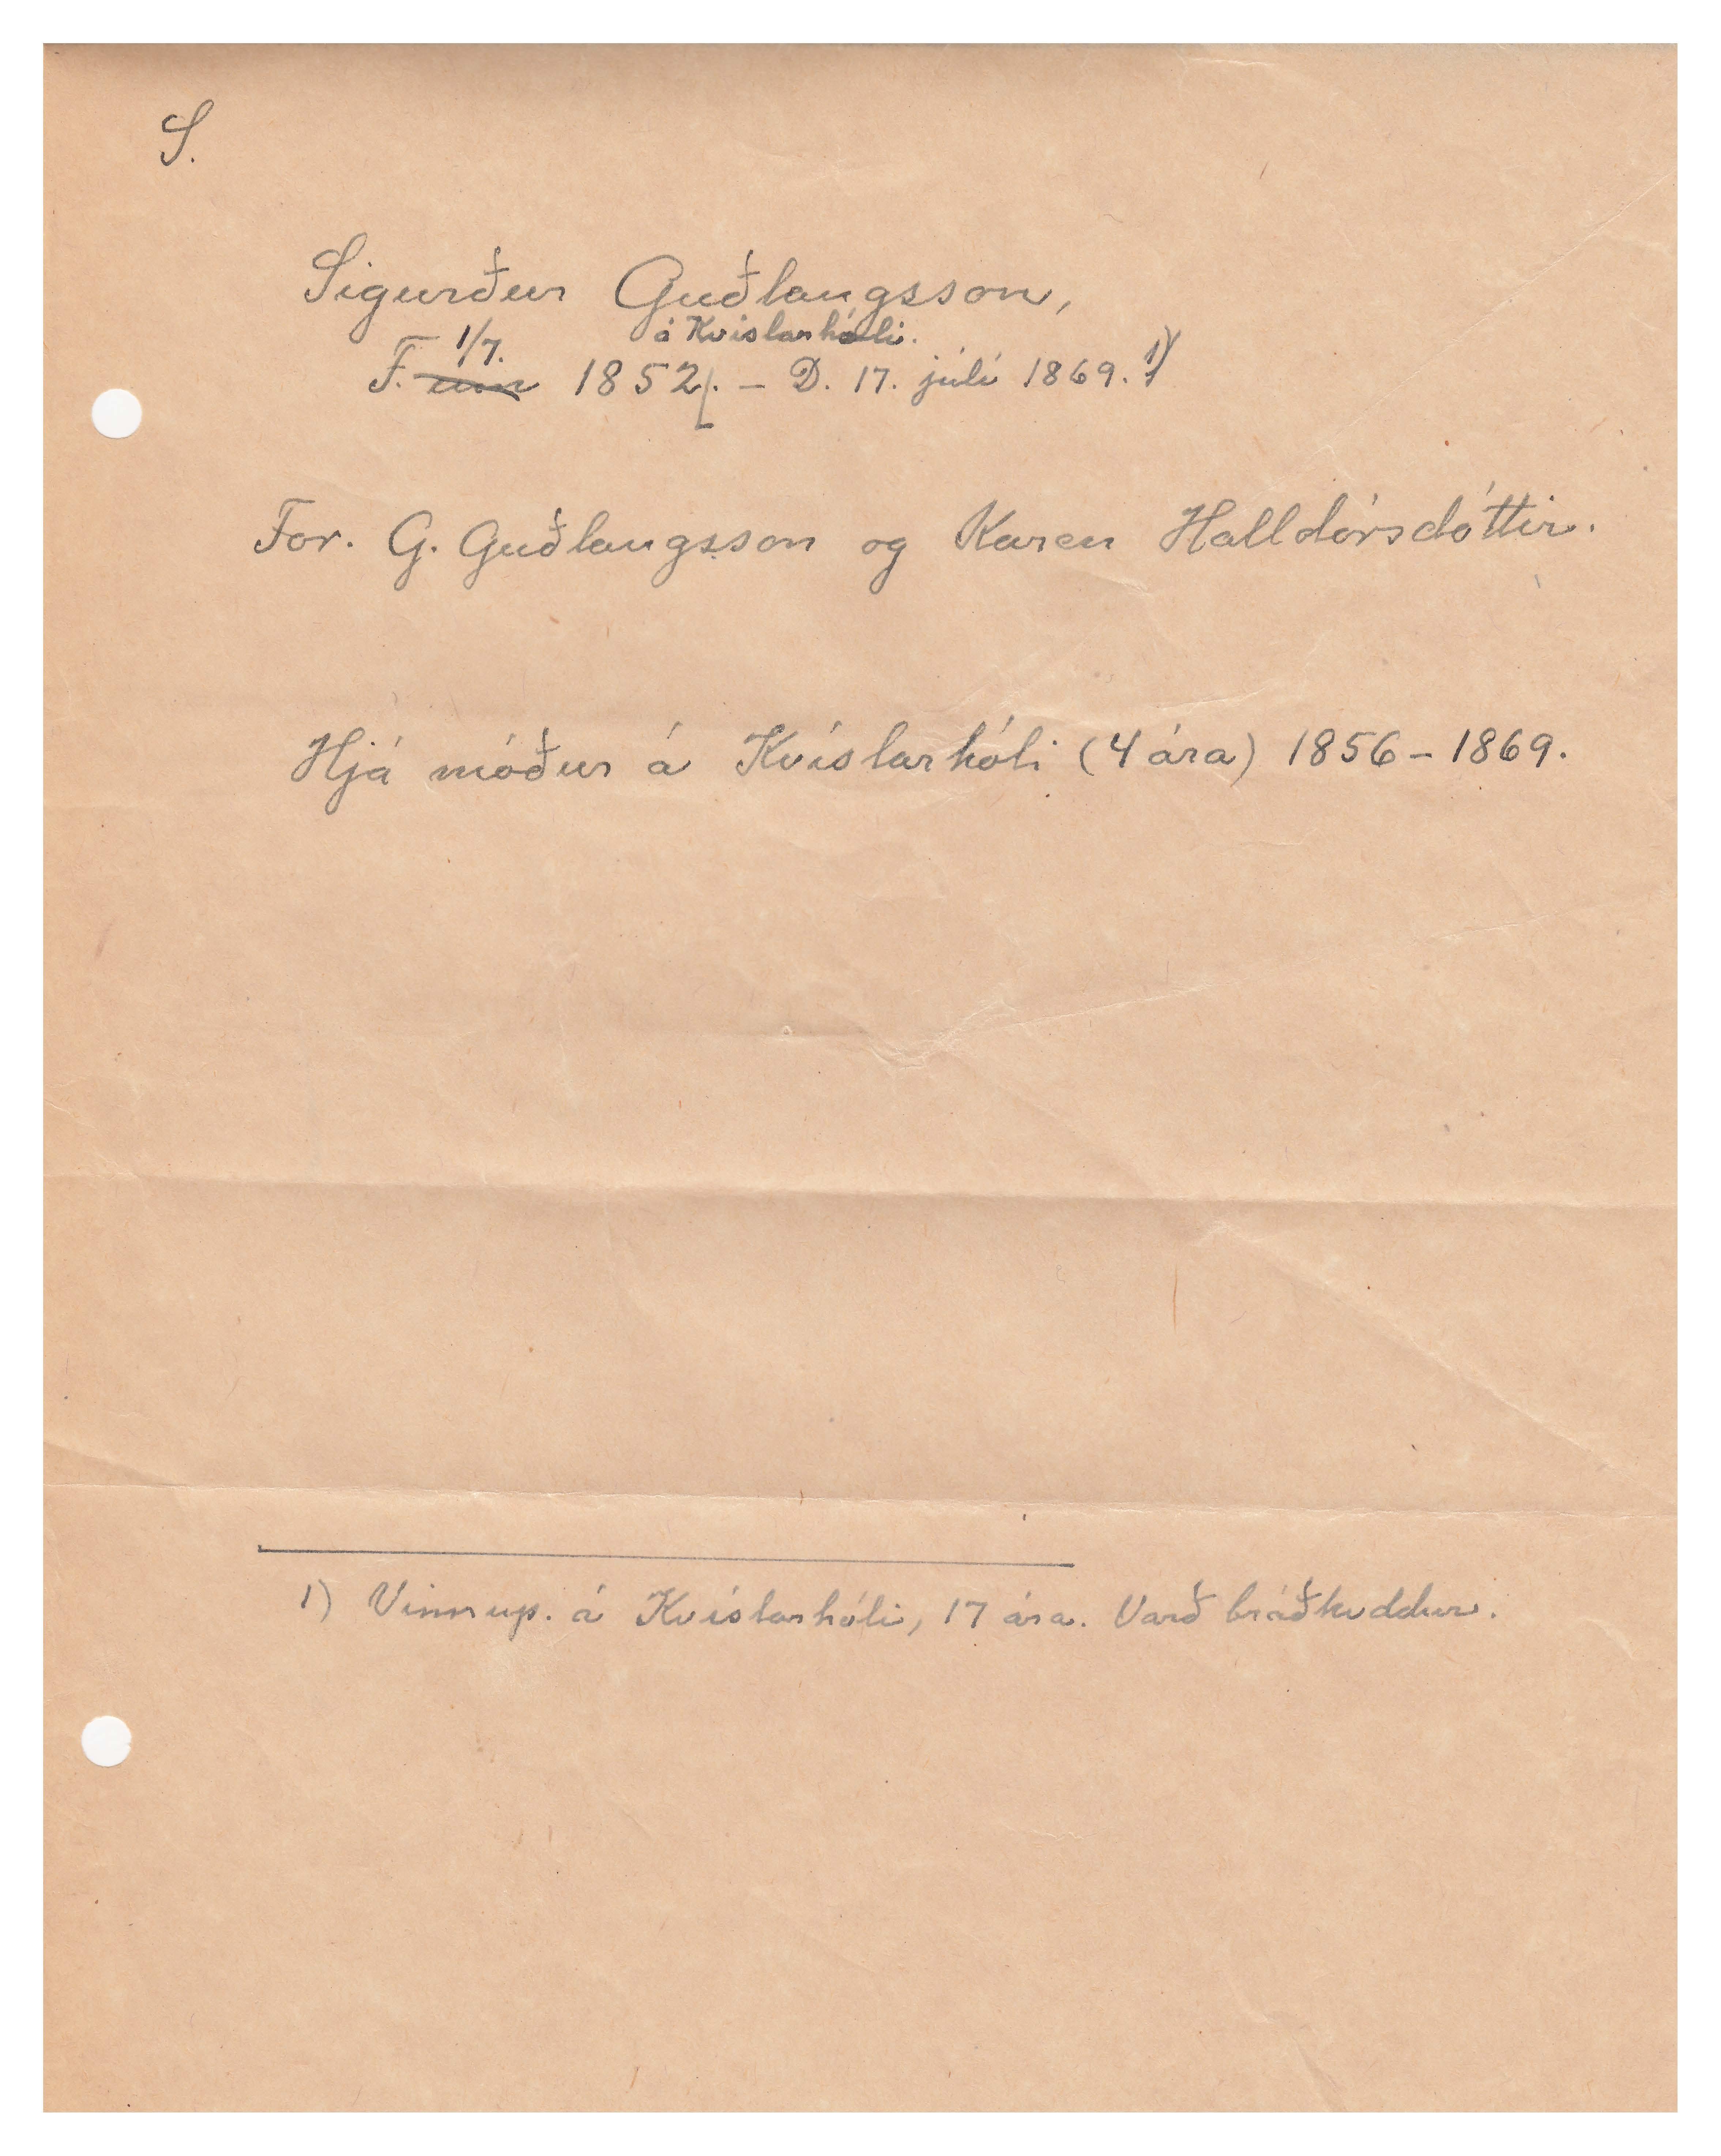 S.
Sigurður Guðlaugsson,
1/7. á Kvíslarhóli.
F. um 1852. – D. 17. júlí 1869. 1)
For. G. Guðlaugsson og Karen Halldórsdóttir.
Hjá móður á Kvíslarhóli (4 ára) 1856 – 1869.
1) Vinnup. á Kvíslarhóli, 17 ára. Varð bráðkvddur.